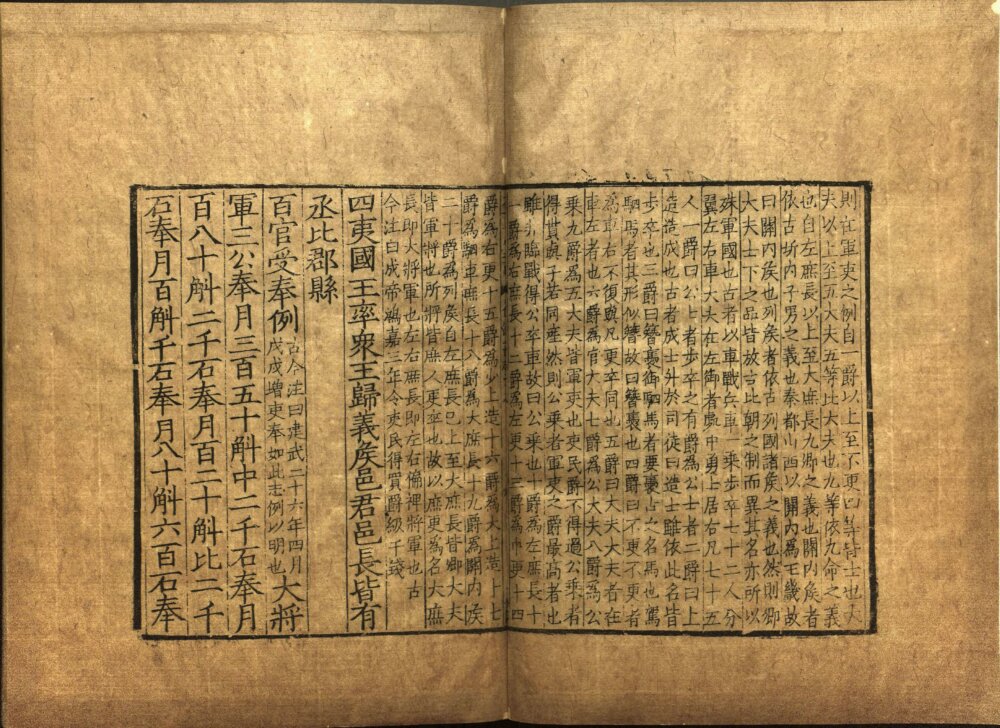 則在軍吏之例自一爵以上至不更四等皆士也大
夫以上至五大夫五等比大夫也九等依九命之義
也自左庶長以上至大庶長九卿之義也關内侯者
依古圻内子男之義也秦都山西以關内爲王畿故
曰關内侯也列侯者依古列國諸侯之義也然則卿
大夫士下之品皆放古比朝之制而異其名亦所以
殊軍國也古者以車戰兵車一乗步卒七十二人分
翼左右車大夫在左御者處中勇士居右凡七十五
人一爵曰公士者步卒之有爵爲公士者二爵曰上
造造成也古者成士升於司徒曰造士雖依此名皆
步卒也三爵曰簪褭御駟馬者要褭古之名馬也駕
駟馬者其形似簪故曰簪褭也四爵曰不更不更者
爲車右不復與凡更卒同也五爵曰大夫大夫者在
車左者也六爵爲官大夫七爵爲公大夫八爵爲公
乗九爵爲五大夫皆軍吏也吏民爵不得過公乗者
得貰與子若同産然則公乗者軍吏之爵最高者也
雖非臨戰得公卒車故曰公乗也十爵爲左庶長十
一爵爲右庶長十二爵爲左更十三爵爲中更十四
爵爲右更十五爵爲少上造十六爵爲大上造十七
爵爲駟車庶長十八爵爲大庶長十九爵爲關内侯
二十爵爲列侯自左庶長已上至大庶長皆卿大夫
皆軍將也所將皆庶人更卒也故以庶更爲名大庶
長即大將軍也左右庶長即左右偏裨將軍也 古
今注曰成帝鴻嘉三年令吏民得買爵級千錢
四夷國王率衆王歸義侯邑君邑長皆有
丞比郡縣
百官受奉例古今注曰建武二十六年四月戊戌增吏奉如此志例以明也大將
軍三公奉月三百五十斛中二千石奉月
百八十斛二千石奉月百二十斛比二千
石奉月百斛千石奉月八十斛六百石奉